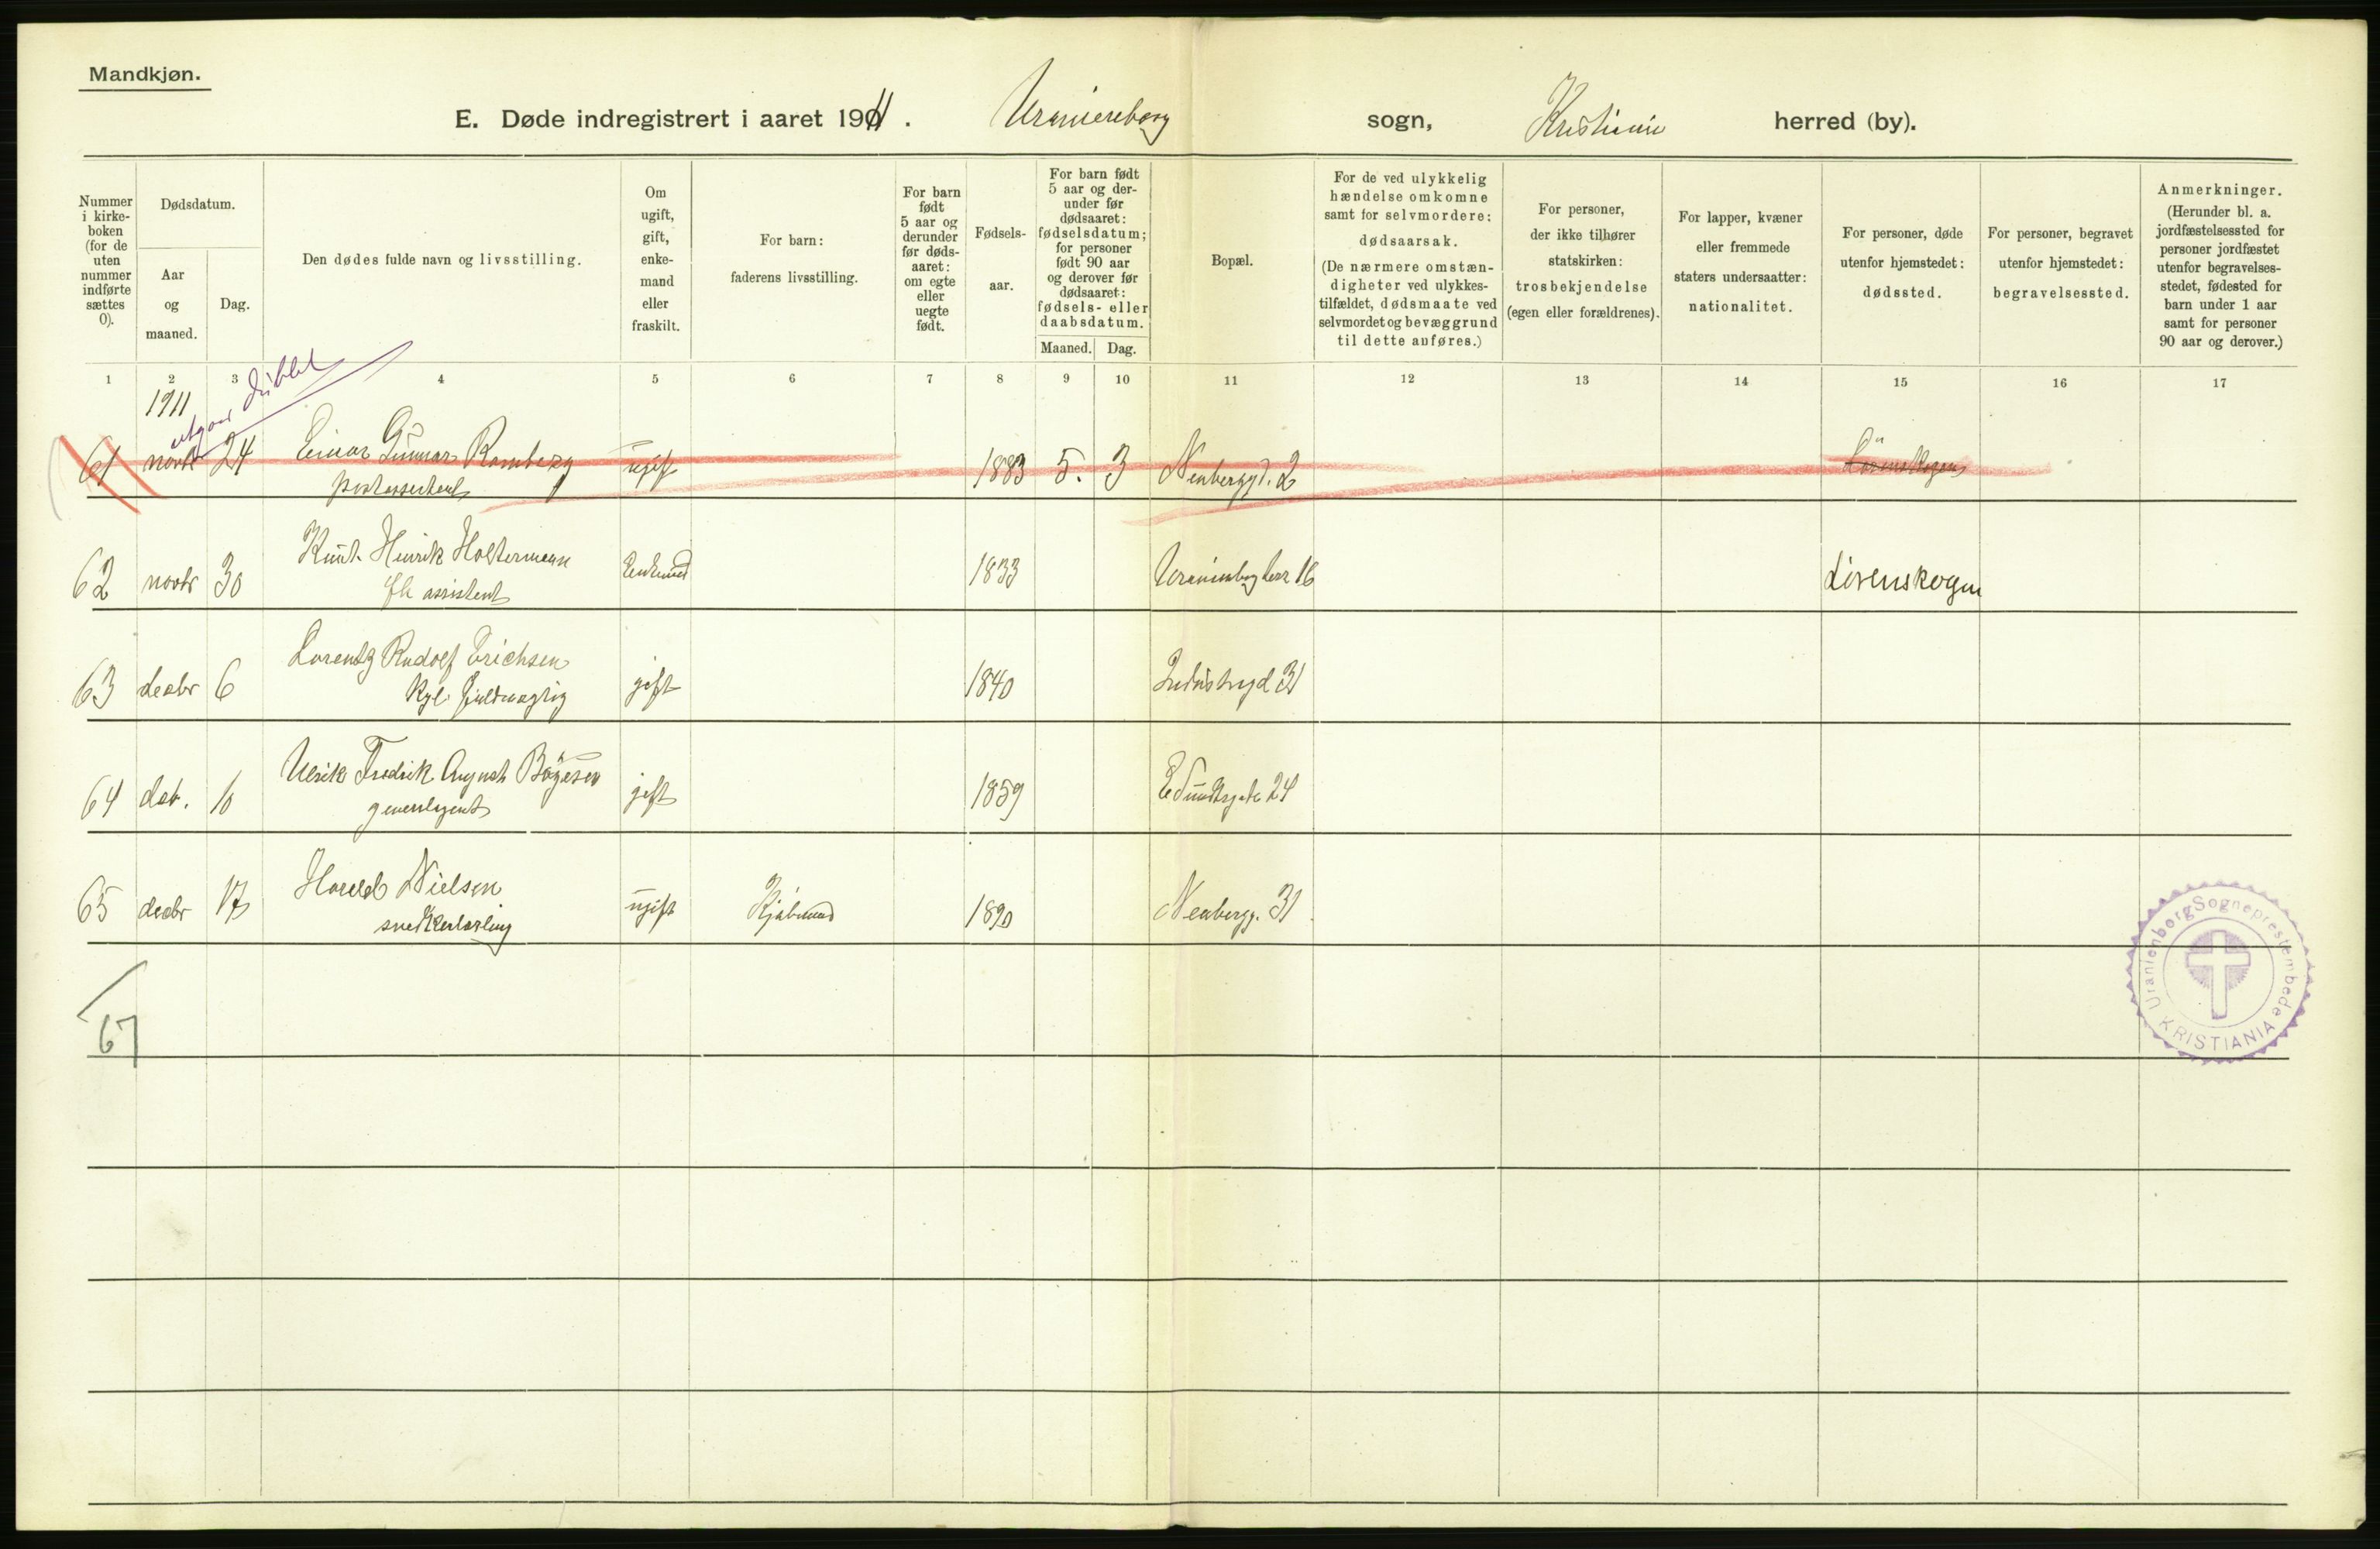 Mandkjøn.
E. Døde indregistrert i aaret 1911. Uranienborg sogn, Kristiania herred (by).
Nummer i kirkeboken (for de uten nummer indførte sættes 0).
Dødsdatum.
Aar og maaned.
Dag.
Den dødes fulde navn og livsstilling.
Om ugift, gift, enkemand eller fraskilt.
For barn: faderens livsstilling.
For barn født 5 aar og derunder før dødsaaret: om egte eller uegte født.
Fødselsaar.
For barn født 5 aar og derunder før dødsaaret: fødselsdatum; for personer født 90 aar og derover før dødsaaret: fødsels- eller daabsdatum.
Maaned. Dag.
Bopæl.
For de ved ulykkelig hændelse omkomne samt for selvmordere: dødsaarsak. (De nærmere omstændigheter ved ulykkestilfældet, dødsmaate ved selvmordet og bevæggrund til dette anføres.)
For personer, der ikke tilhører statskirken: trosbekjendelse (egen eller forældrenes).
For lapper, kvæner eller fremmede staters undersaatter: nationalitet.
For personer, døde utenfor hjemstedet: dødssted.
For personer, begravet utenfor hjemstedet: begravelsessted.
Anmerkninger. (Herunder bl. a. jordfæstelsessted for personer jordfæstet utenfor begravelsesstedet, fødested for barn under 1 aar samt for personer 90 aar og derover.)
1 2 3 4 5 6 7 8 9 10 11 12 13 14 15 16 17
1911
utgaar
61 novbr 24 Einar Gunnar Ramberg ugift 1883 5. 3 Neubergg. 2 Lørenskogen
postassistent
62 novbr 30 Knut Henrik Holtermann Enkemd 1833 Uranienborg terr 16 Lörenskogen
fh assistent
63 decbr 6 Lorentz Rudolf Erichsen gift 1840 Industrigd 31
Kgl. fuldmægtig
64 deb. 10 Ulrik Fredrik August Böyesen gift 1859 Eilundtsgate 24
generalagent
65 decbr 17 Harald Nielsen ugift Kjöbmand 1890 Neubergg. 31
snedkerlærling
67
Uranienborg Sogneprestembede
KRISTIANIA